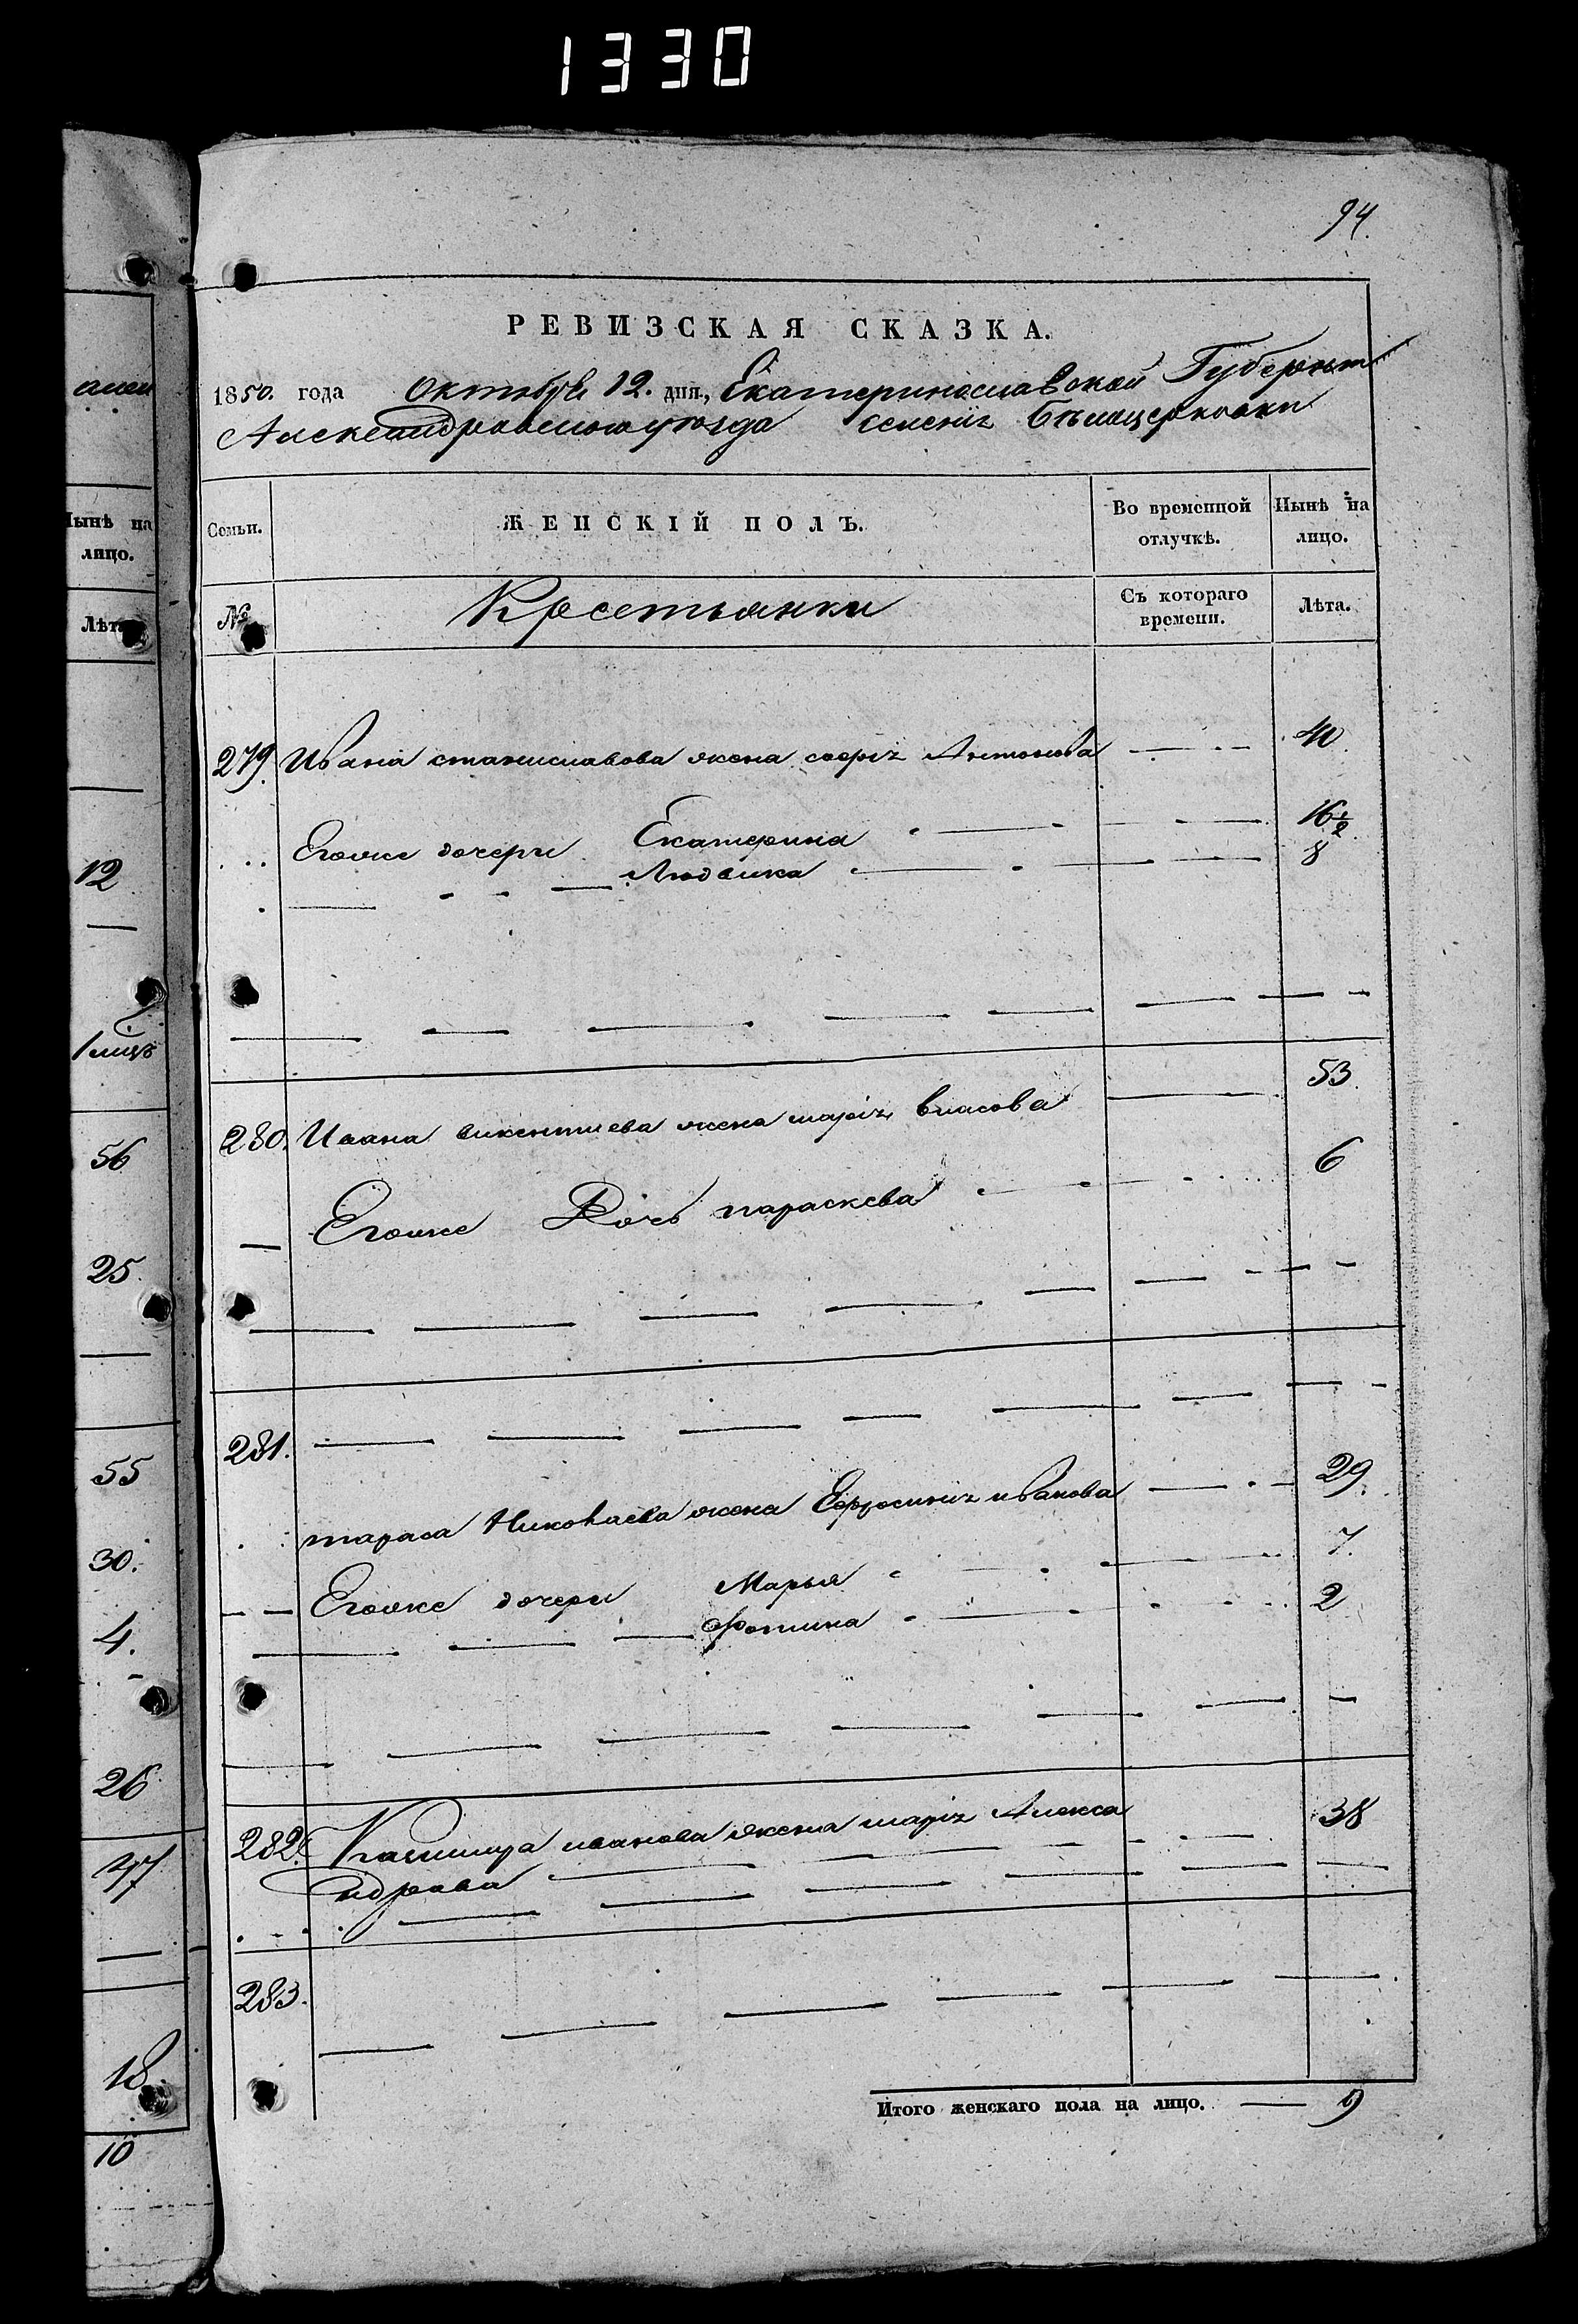 1330
алеи
Нынѣ на
лицо.
Лѣта
12
1/2
1 мцъ
56
25
55
30.
4.
26
47
18.
10
94.
РЕВИЗСКАЯ СКАЗКА.
1850. года Октября 12. дня, Екатеринославской Губерніи
Александровскаго уѣзда селенія Бѣлоцерковки
Семьи. ЖЕНСКІЙ ПОЛЪ. Во временной отлучкѣ. Нынѣ на лицо.
№ Крестьянки Съ котораго времени. Лѣта.
279. Ивана станиславова жена софія Антонова 40.
Егоже дочери Екатерина 16 1/2
Людвика 8
280. Ивана викентиева жена марія власова 53.
Егоже Дочь параскева 6
281.
тараса Николаева жена Ефросинія иванова 29.
Егоже дочери Марья 7.
Фотина 2
282. Казимира иванова жена марія Алекса 38
ндрова
283.
Итого женскаго пола на лицо. 9